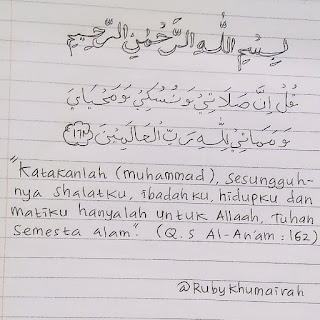 بِسْمِ اللّٰهِ الرَّحْمٰنِ الرَّحِيْمِ
قُلْ اِنَّ صَلَاتِيْ وَنُسُكِيْ وَمَحْيَايَ
وَمَمَاتِيْ لِلّٰهِ رَبِّ الْعَالَمِيْنَ ١٦٢
"Katakanlah (muhammad), sesungguh-
nya shalatku, ibadahku, hidupku dan
matiku hanyalah untuk Allaah, Tuhan
semesta alam". (Q.S Al-An'am : 162)
@Rubykhumairah